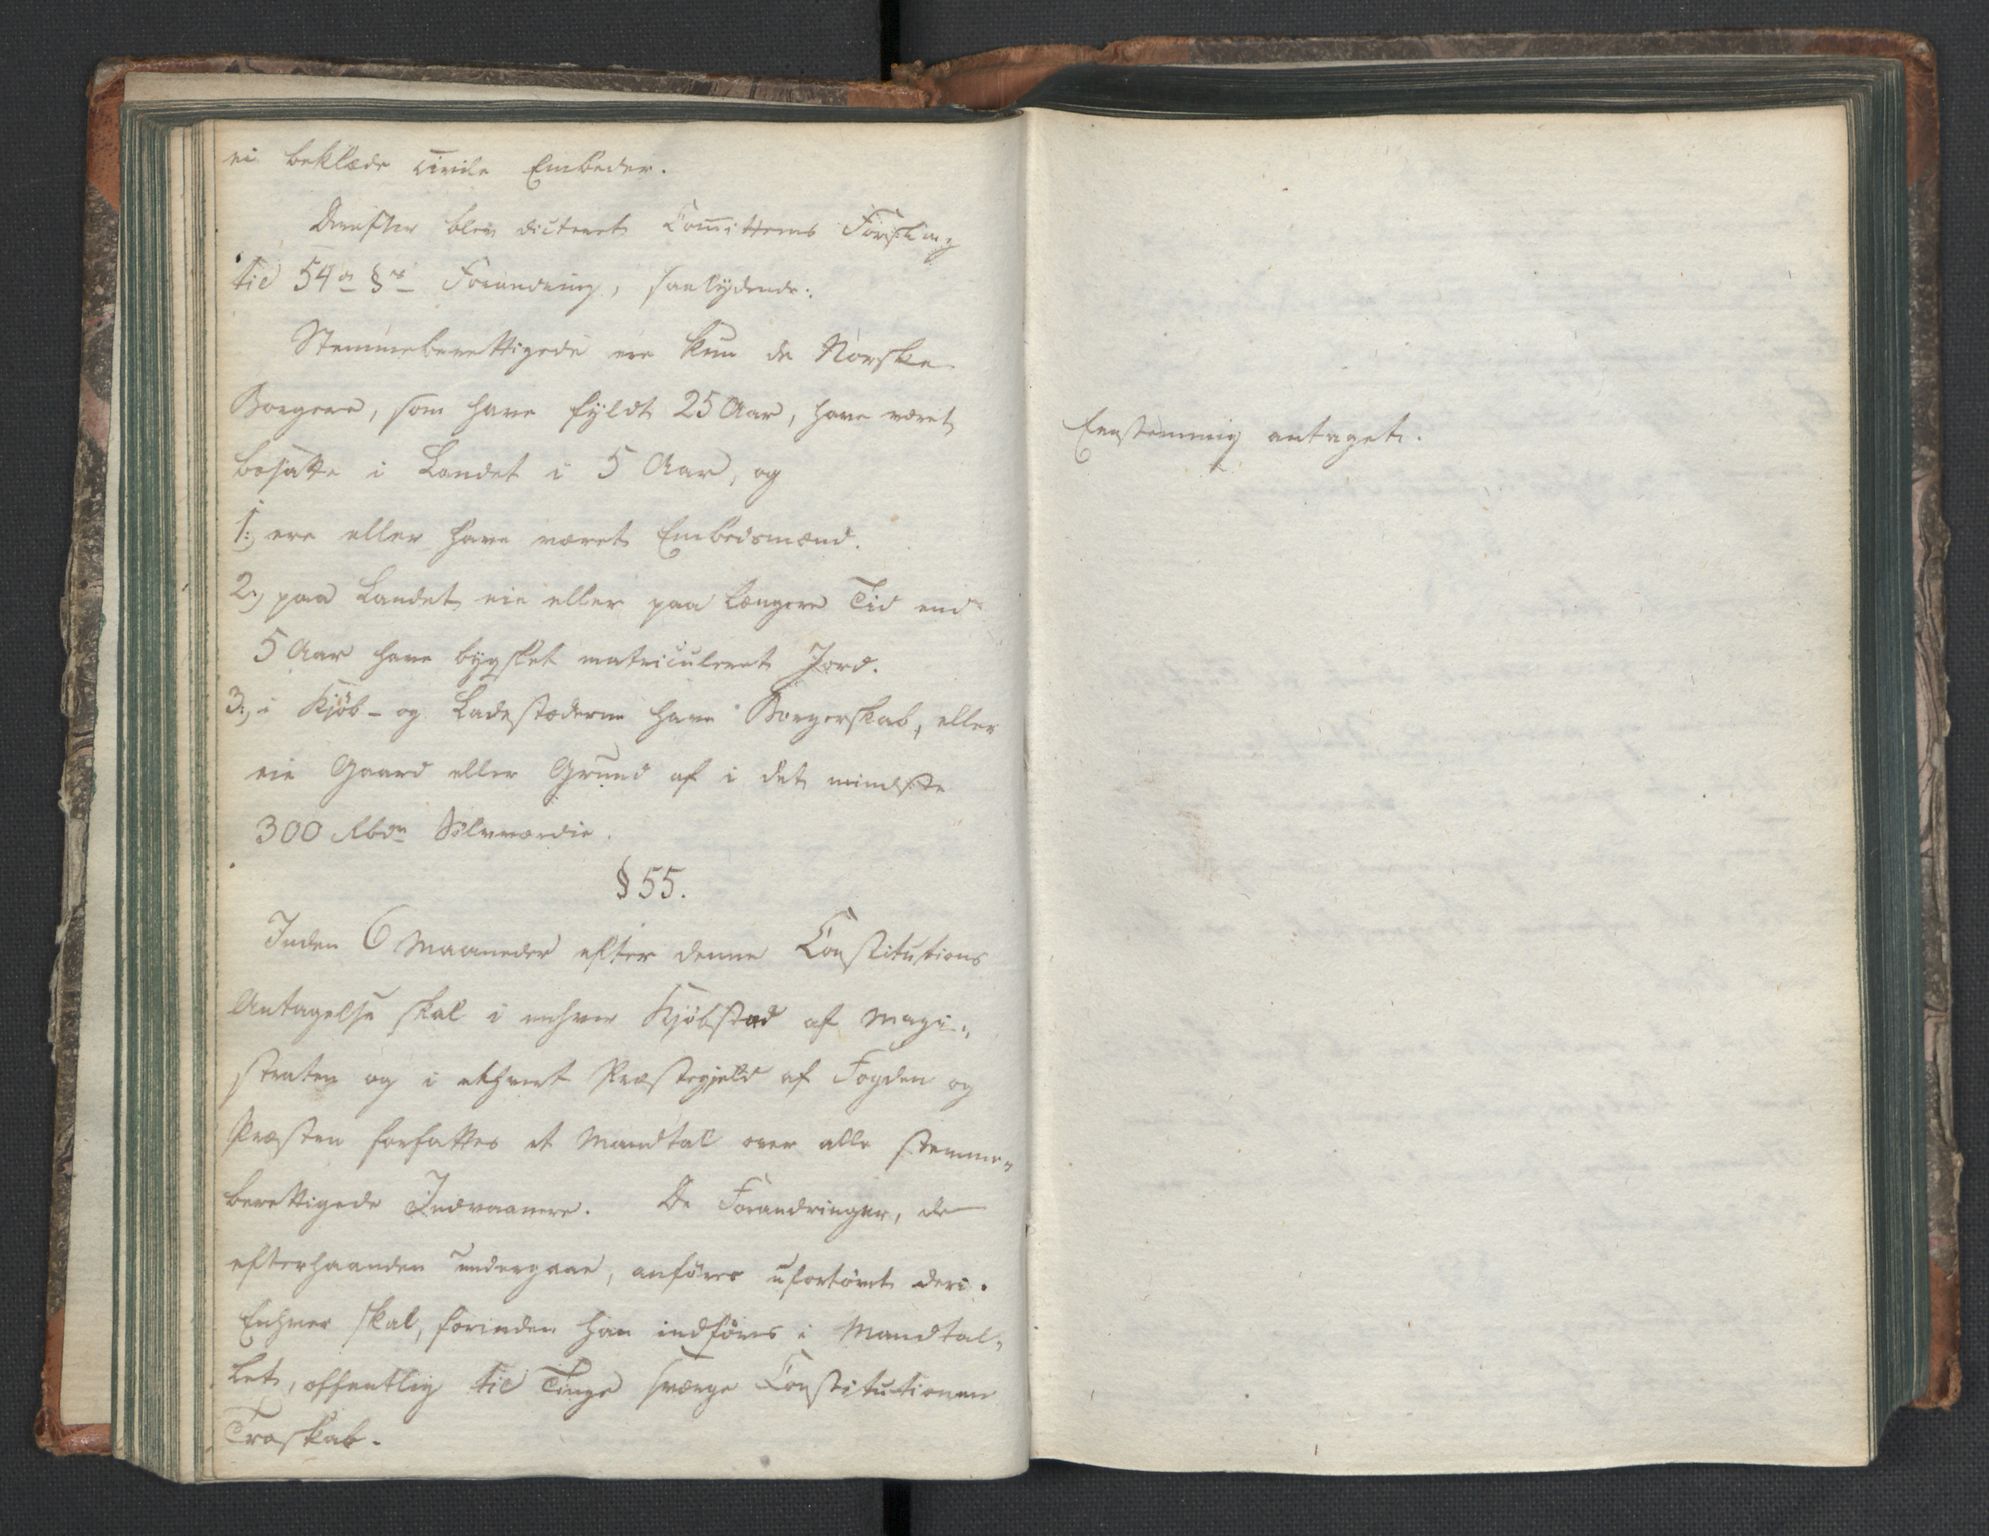 ei beklæde civile Embeder.
Derefter blev dicteret Committeens Forslag
til 54de §s Forandring, saalydende:
Stemmeberettigede ere kun de Norske
Borgere, som have fyldt 25 Aar, have været
bosatte i Landet i 5 Aar, og
1:, ere eller have været Embedsmænd.
2:, paa Landet eie eller paa længere Tid end
5 Aar have bygslet matriculeret Jord.
3:, i Kjøb- og Ladestæderne have Borgerskab, eller
eie Gaard eller Grund af i det mindste
300 Rbdr Sølvværdie.
§ 55.
Inden 6 Maaneder efter denne Constitutions
Antagelse skal i enhver Kjøbstad af Magi-
straten og i ethvert Præstegjeld af Fogden og
Præsten forfattes et Mandtal over alle stemme-
berettigede Indvaanere. De Forandringer, de
efterhaanden undergaae, anføres ufortövet deri.
Enhver skal, forinden han indføres i Mandtal-
let, offentlig til Tinge sværge Constitutionen
Troskab.
Eenstemmig antaget.